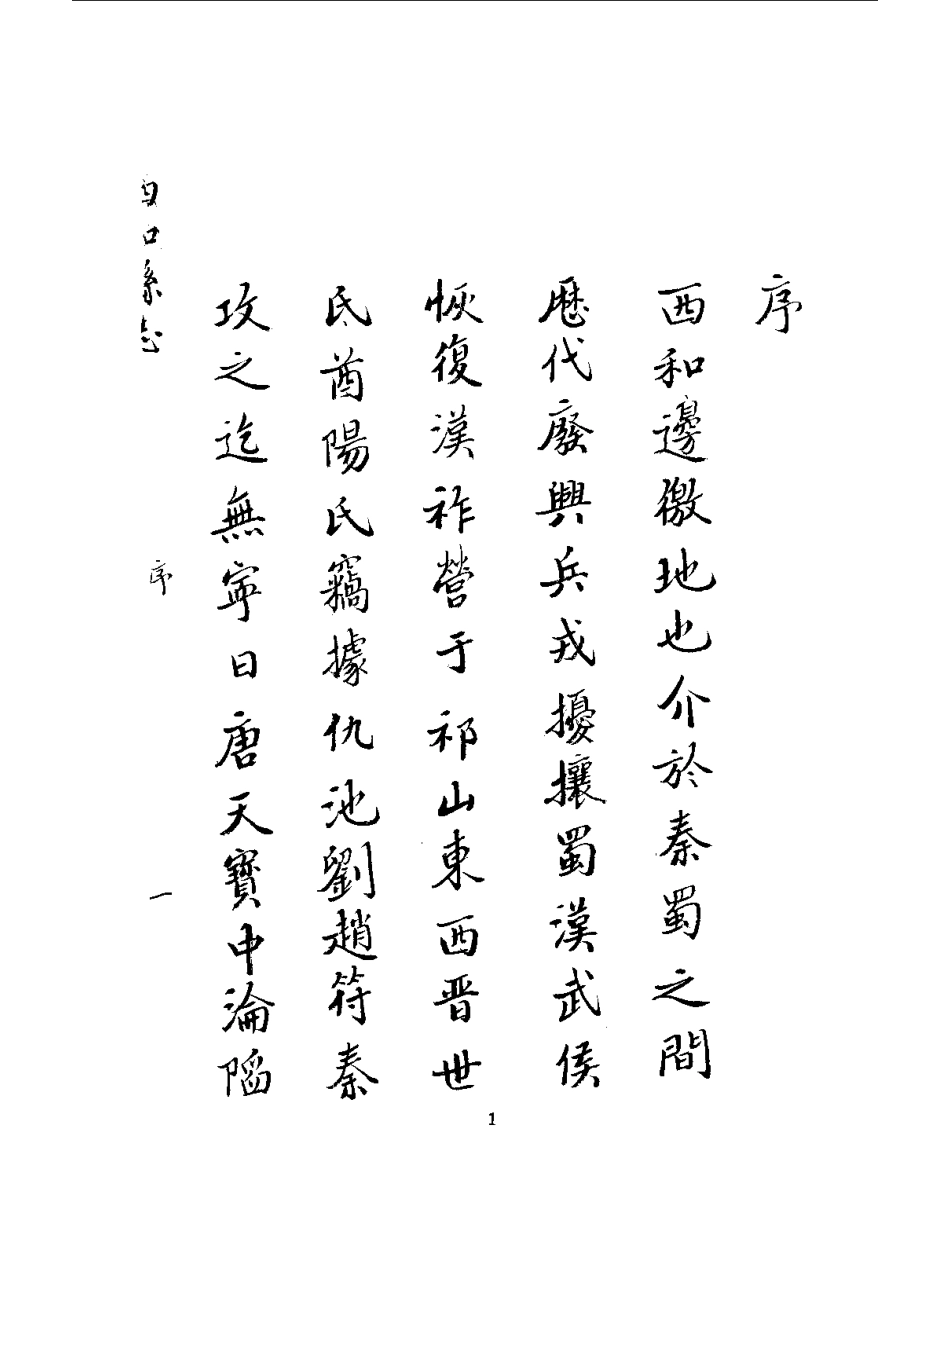 序
西和邊徼地也介於秦蜀之間
歷代廢興兵戎擾攘蜀漢武侯
恢復漢祚營于祁山東西晋世
氐酋陽氏竊據仇池劉趙符秦
攻之迄無寧日唐天寶中淪陷
序
一
1